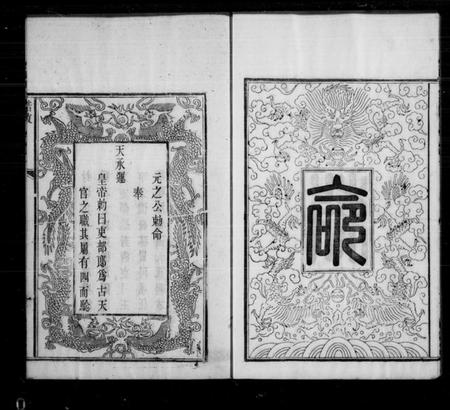 命
元之公勅命
奉
天承運
皇帝勅曰吏部郎爲古天
官之職其屬有四而驗
誥敕